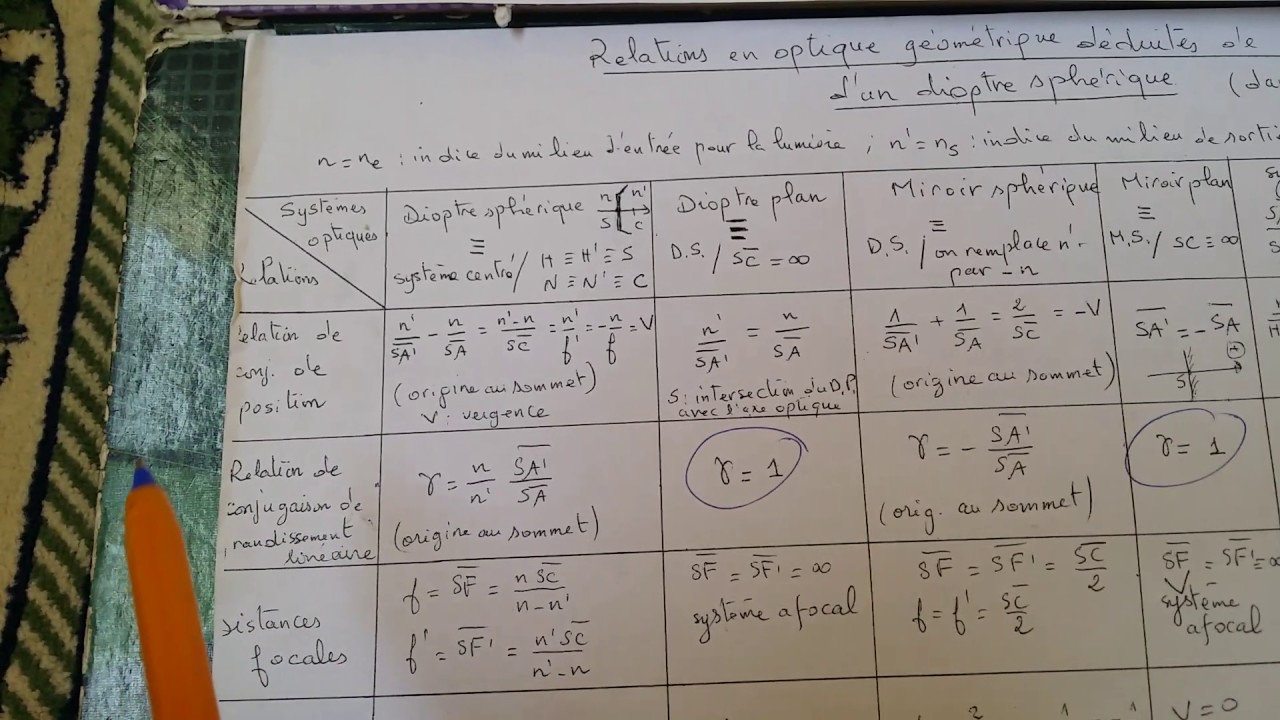 Relations en optique géométrique déduites de
d'un dioptre sphérique (da
n = ne : indice du milieu d'entrée pour la lumière ; n' = ns : indice du milieu de sorti
Systèmes optiques
Relations
Dioptre sphérique n n' S C
≡
système centré / H ≡ H' ≡ S
N ≡ N' ≡ C
Dioptre plan
≡
D.S. / SC = ∞
Miroir sphérique
≡
D.S. / on remplace n'
par -n
Miroir plan
≡
M.S. / SC ≡ ∞
elation de
conj. de
position
n'/SA' - n/SA = n'-n/SC = n'/f' = -n/f = V
(origine au sommet)
V : vergence
n'/SA' = n/SA
S : intersection du D.P.
avec l'axe optique
1/SA' + 1/SA = 2/SC = -V
(origine au sommet)
SA' = - SA
S +
Relation de
conjugaison de
grandissement
linéaire
γ = n/n' SA'/SA
(origine au sommet)
γ = 1
γ = - SA'/SA
(orig. au sommet)
γ = 1
Distances
focales
f = SF = n SC/n-n'
f' = SF' = n' SC/n'-n
SF = SF' = ∞
système afocal
SF = SF' = SC/2
f = f' = SC/2
SF = SF' = ∞
système
afocal
V = 0